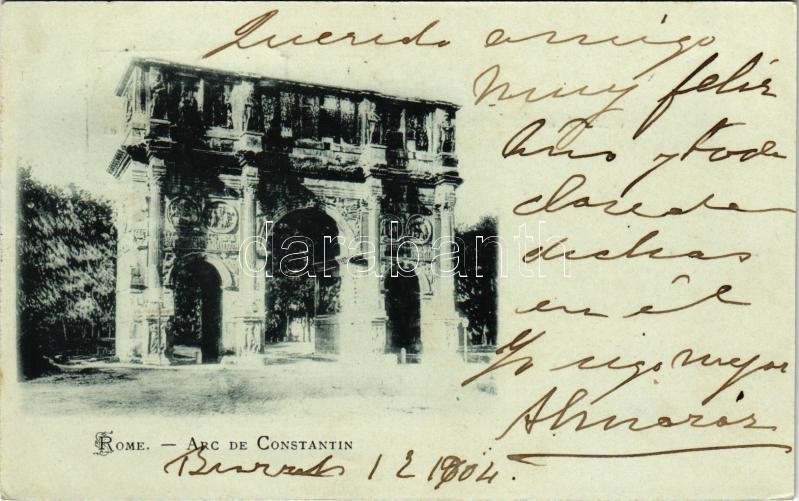 Querido amigo
Muy feliz
Año y toda
clase de
dichas
en él
Yo sigo mejor
Almoraz
ROME. — ARC DE CONSTANTIN
Biarritz 1 E 1904.
darabanth